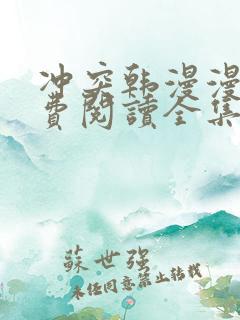 冲突韩漫漫
费閱讀全集
蘇世強
未经同意禁止转载